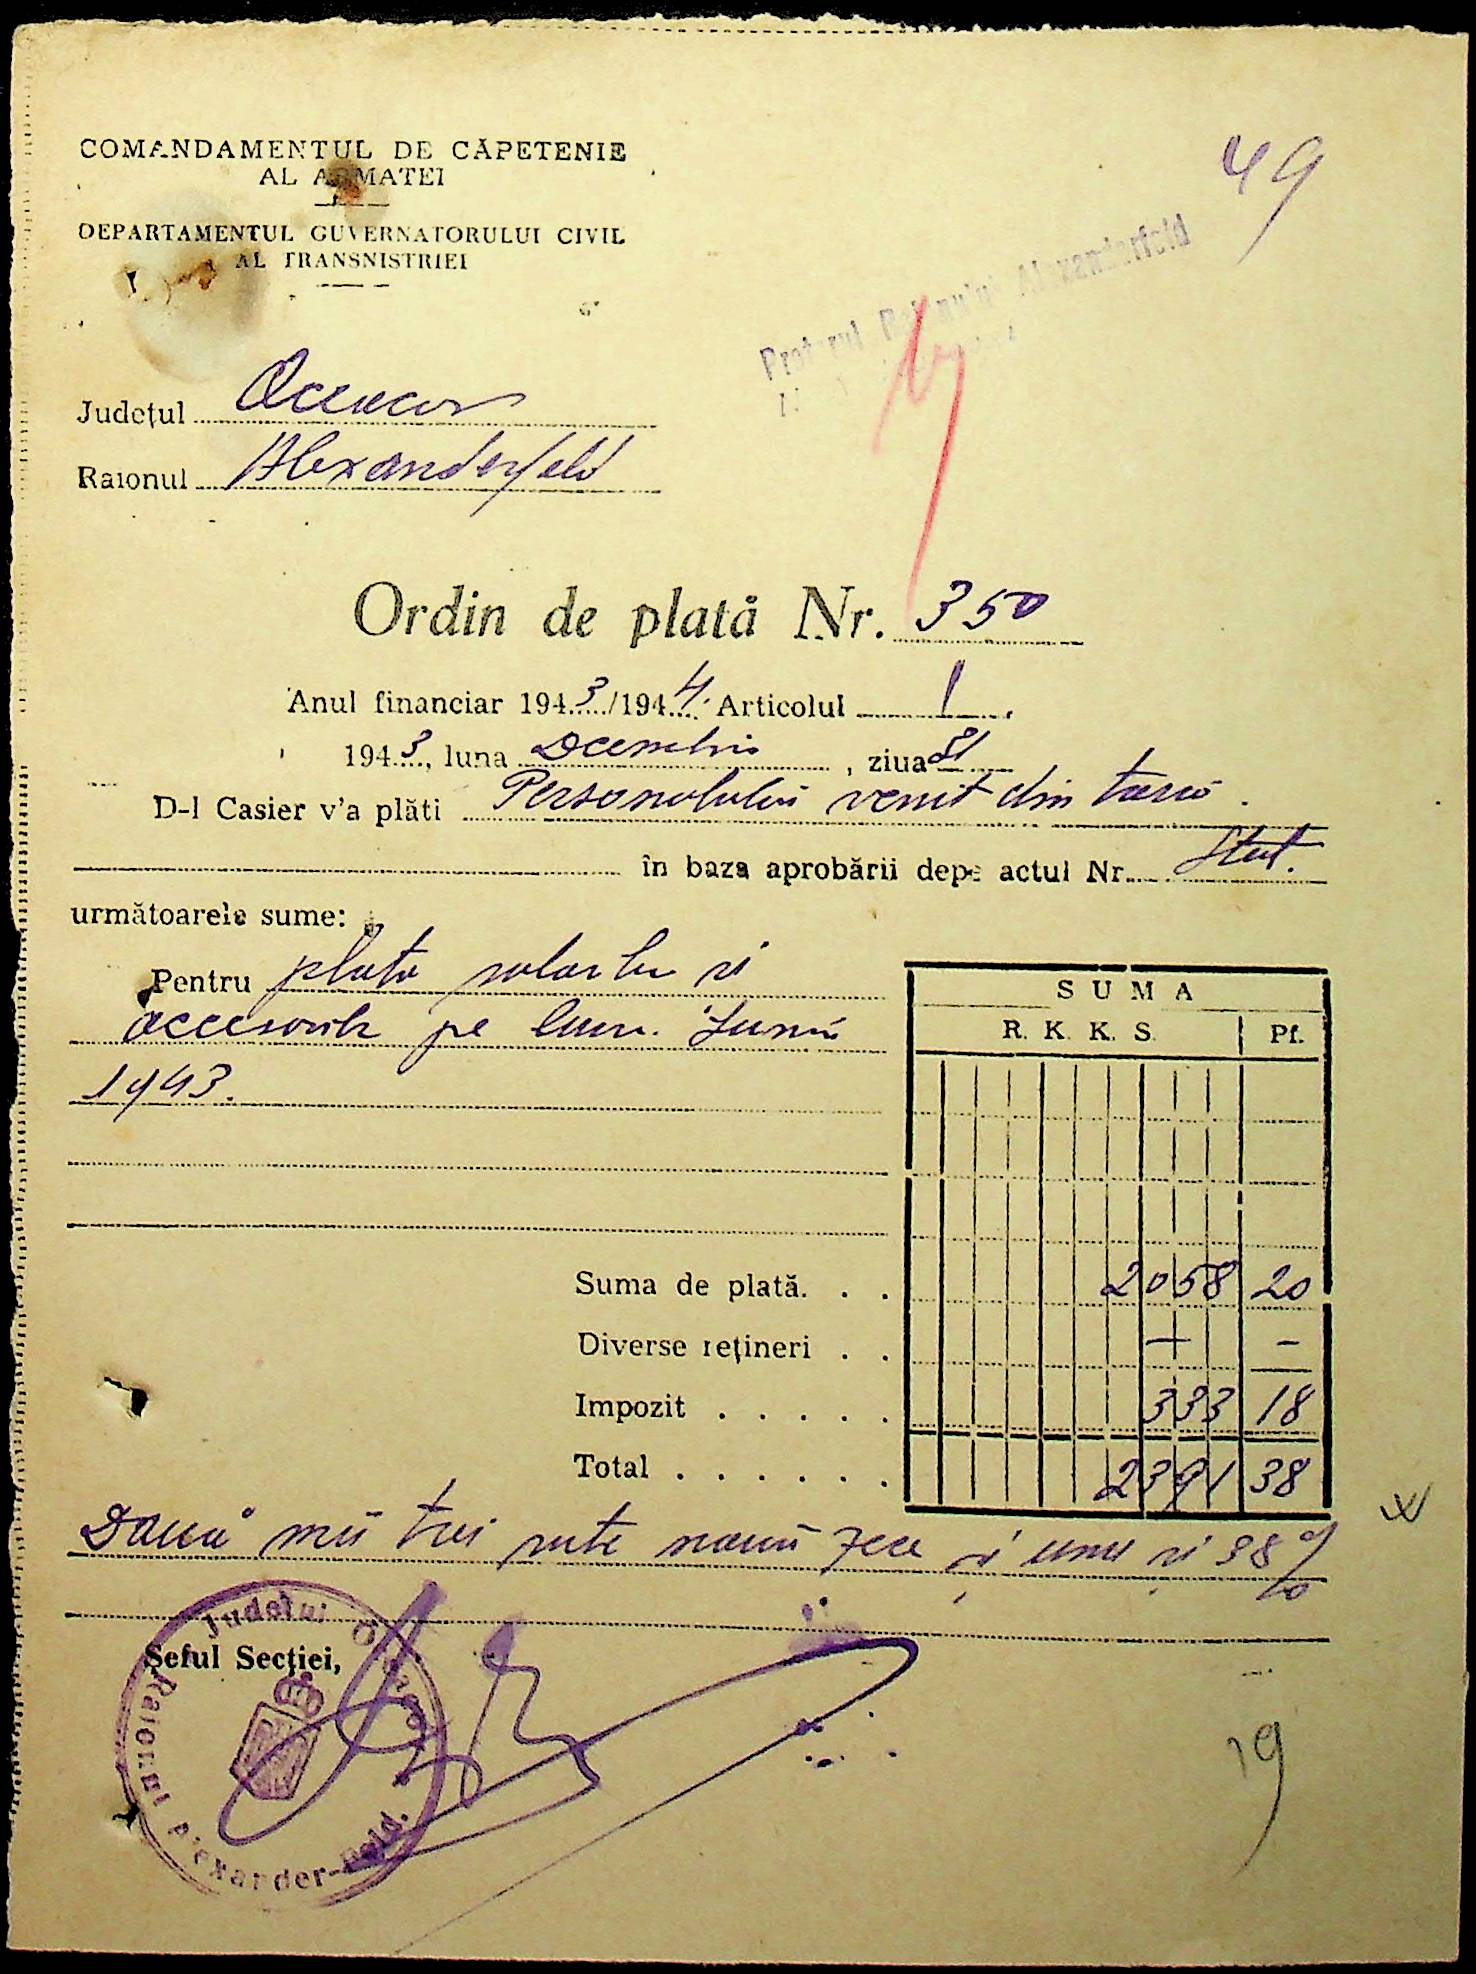 COMANDAMENTUL DE CĂPETENIE
AL ARMATEI
DEPARTAMENTUL GUVERNATORULUI CIVIL
AL TRANSNISTRIEI
49
Pretorul Raionului Alexanderfeld
Județul Oceacov
Raionul Alexanderfeld
Ordin de plată Nr. 350
Anul financiar 1943/1944 Articolul 1
1943, luna Decembrie, ziua 31
D-l Casier v'a plăti Personalului venit din țară
în baza aprobării depe actul Nr. Stat.
următoarele sume:
Pentru plata salarilor și
accesorilor pe luna Iunie
1943.
SUMA
R. K. K. S. Pf.
Suma de plată. . . 2058 20
Diverse rețineri . . — —
Impozit . . . . . 333 18
Total . . . . . . 2391 38
Două mii trei sute nouă zece și unu și 38%
Șeful Secției,
Județul Oceacov
Raionul Alexander-Feld.
19